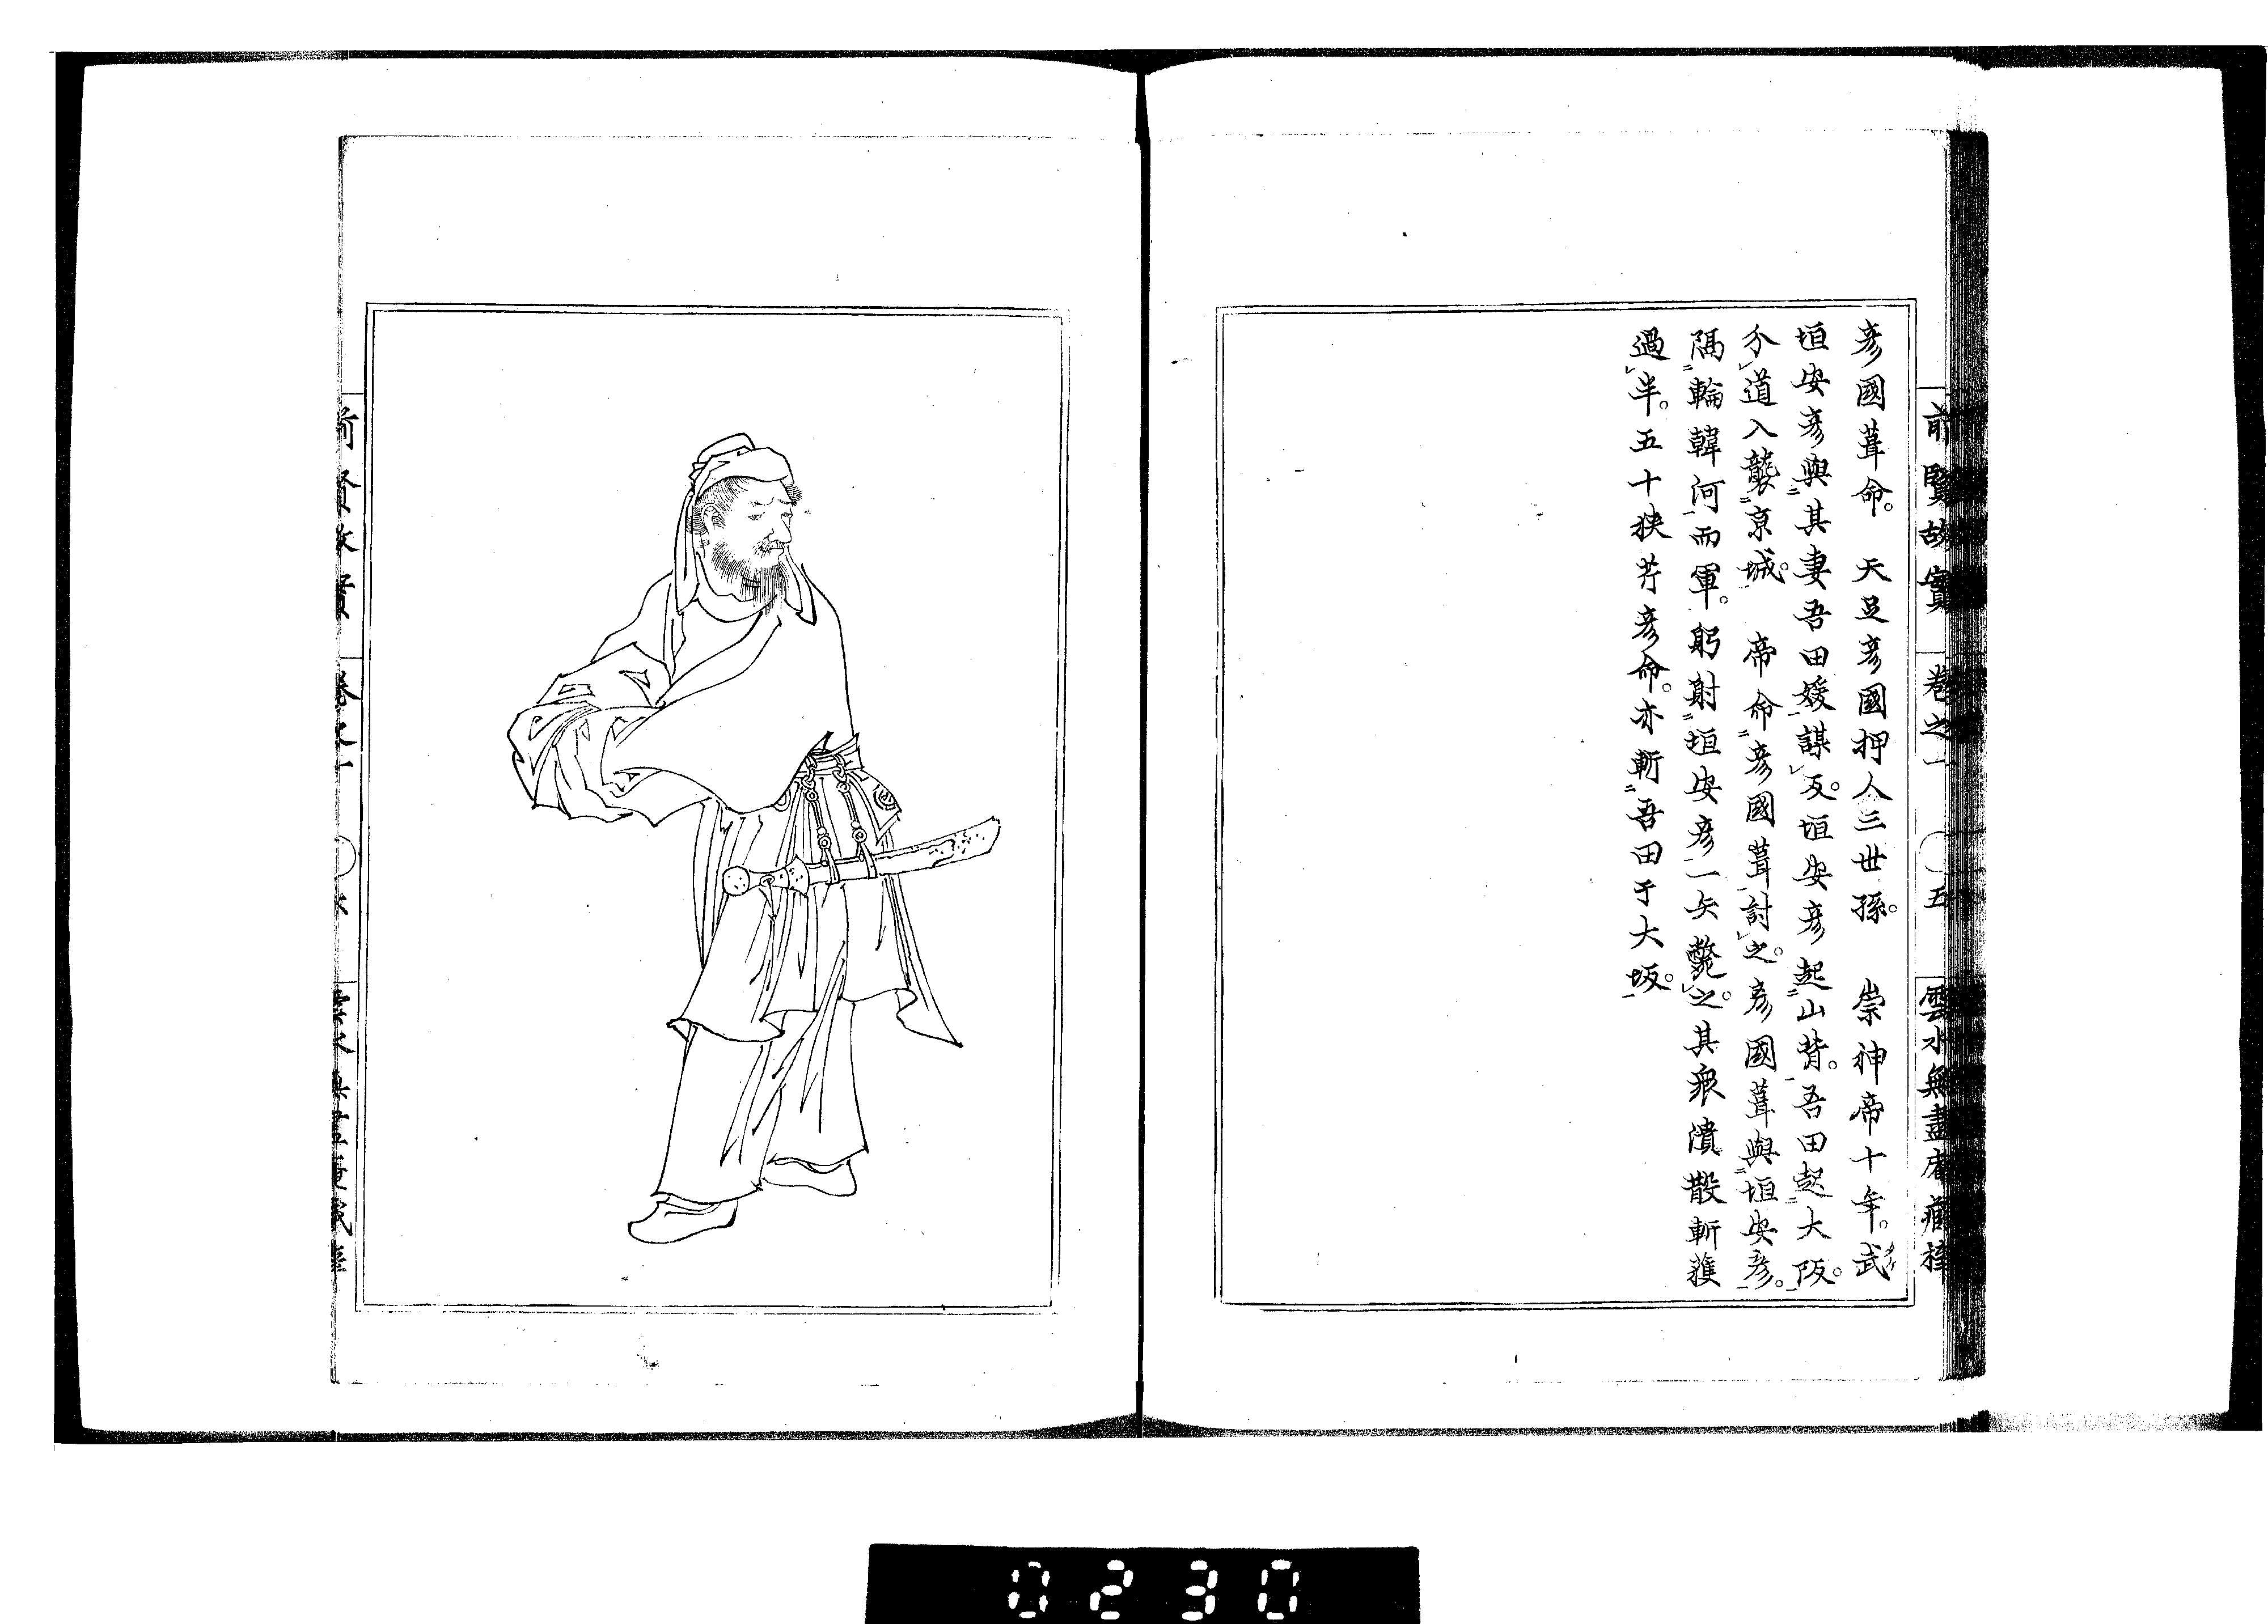 彦國葺命。 天足彦國押人三世孫。 崇神帝十年。武
垣安彦與其妻吾田媛謀反。垣安彦起山背。吾田起大阪。
分道入襲京城。 帝命彦國葺討之。彦國葺與垣安彦。
隔輪韓河而軍。躬射垣安彦一矢斃之。其衆潰散斬獲
過半。五十狹芹彦命。亦斬吾田于大坂。
前賢故實 卷之一 五 雲水無盡庵藏梓
0230